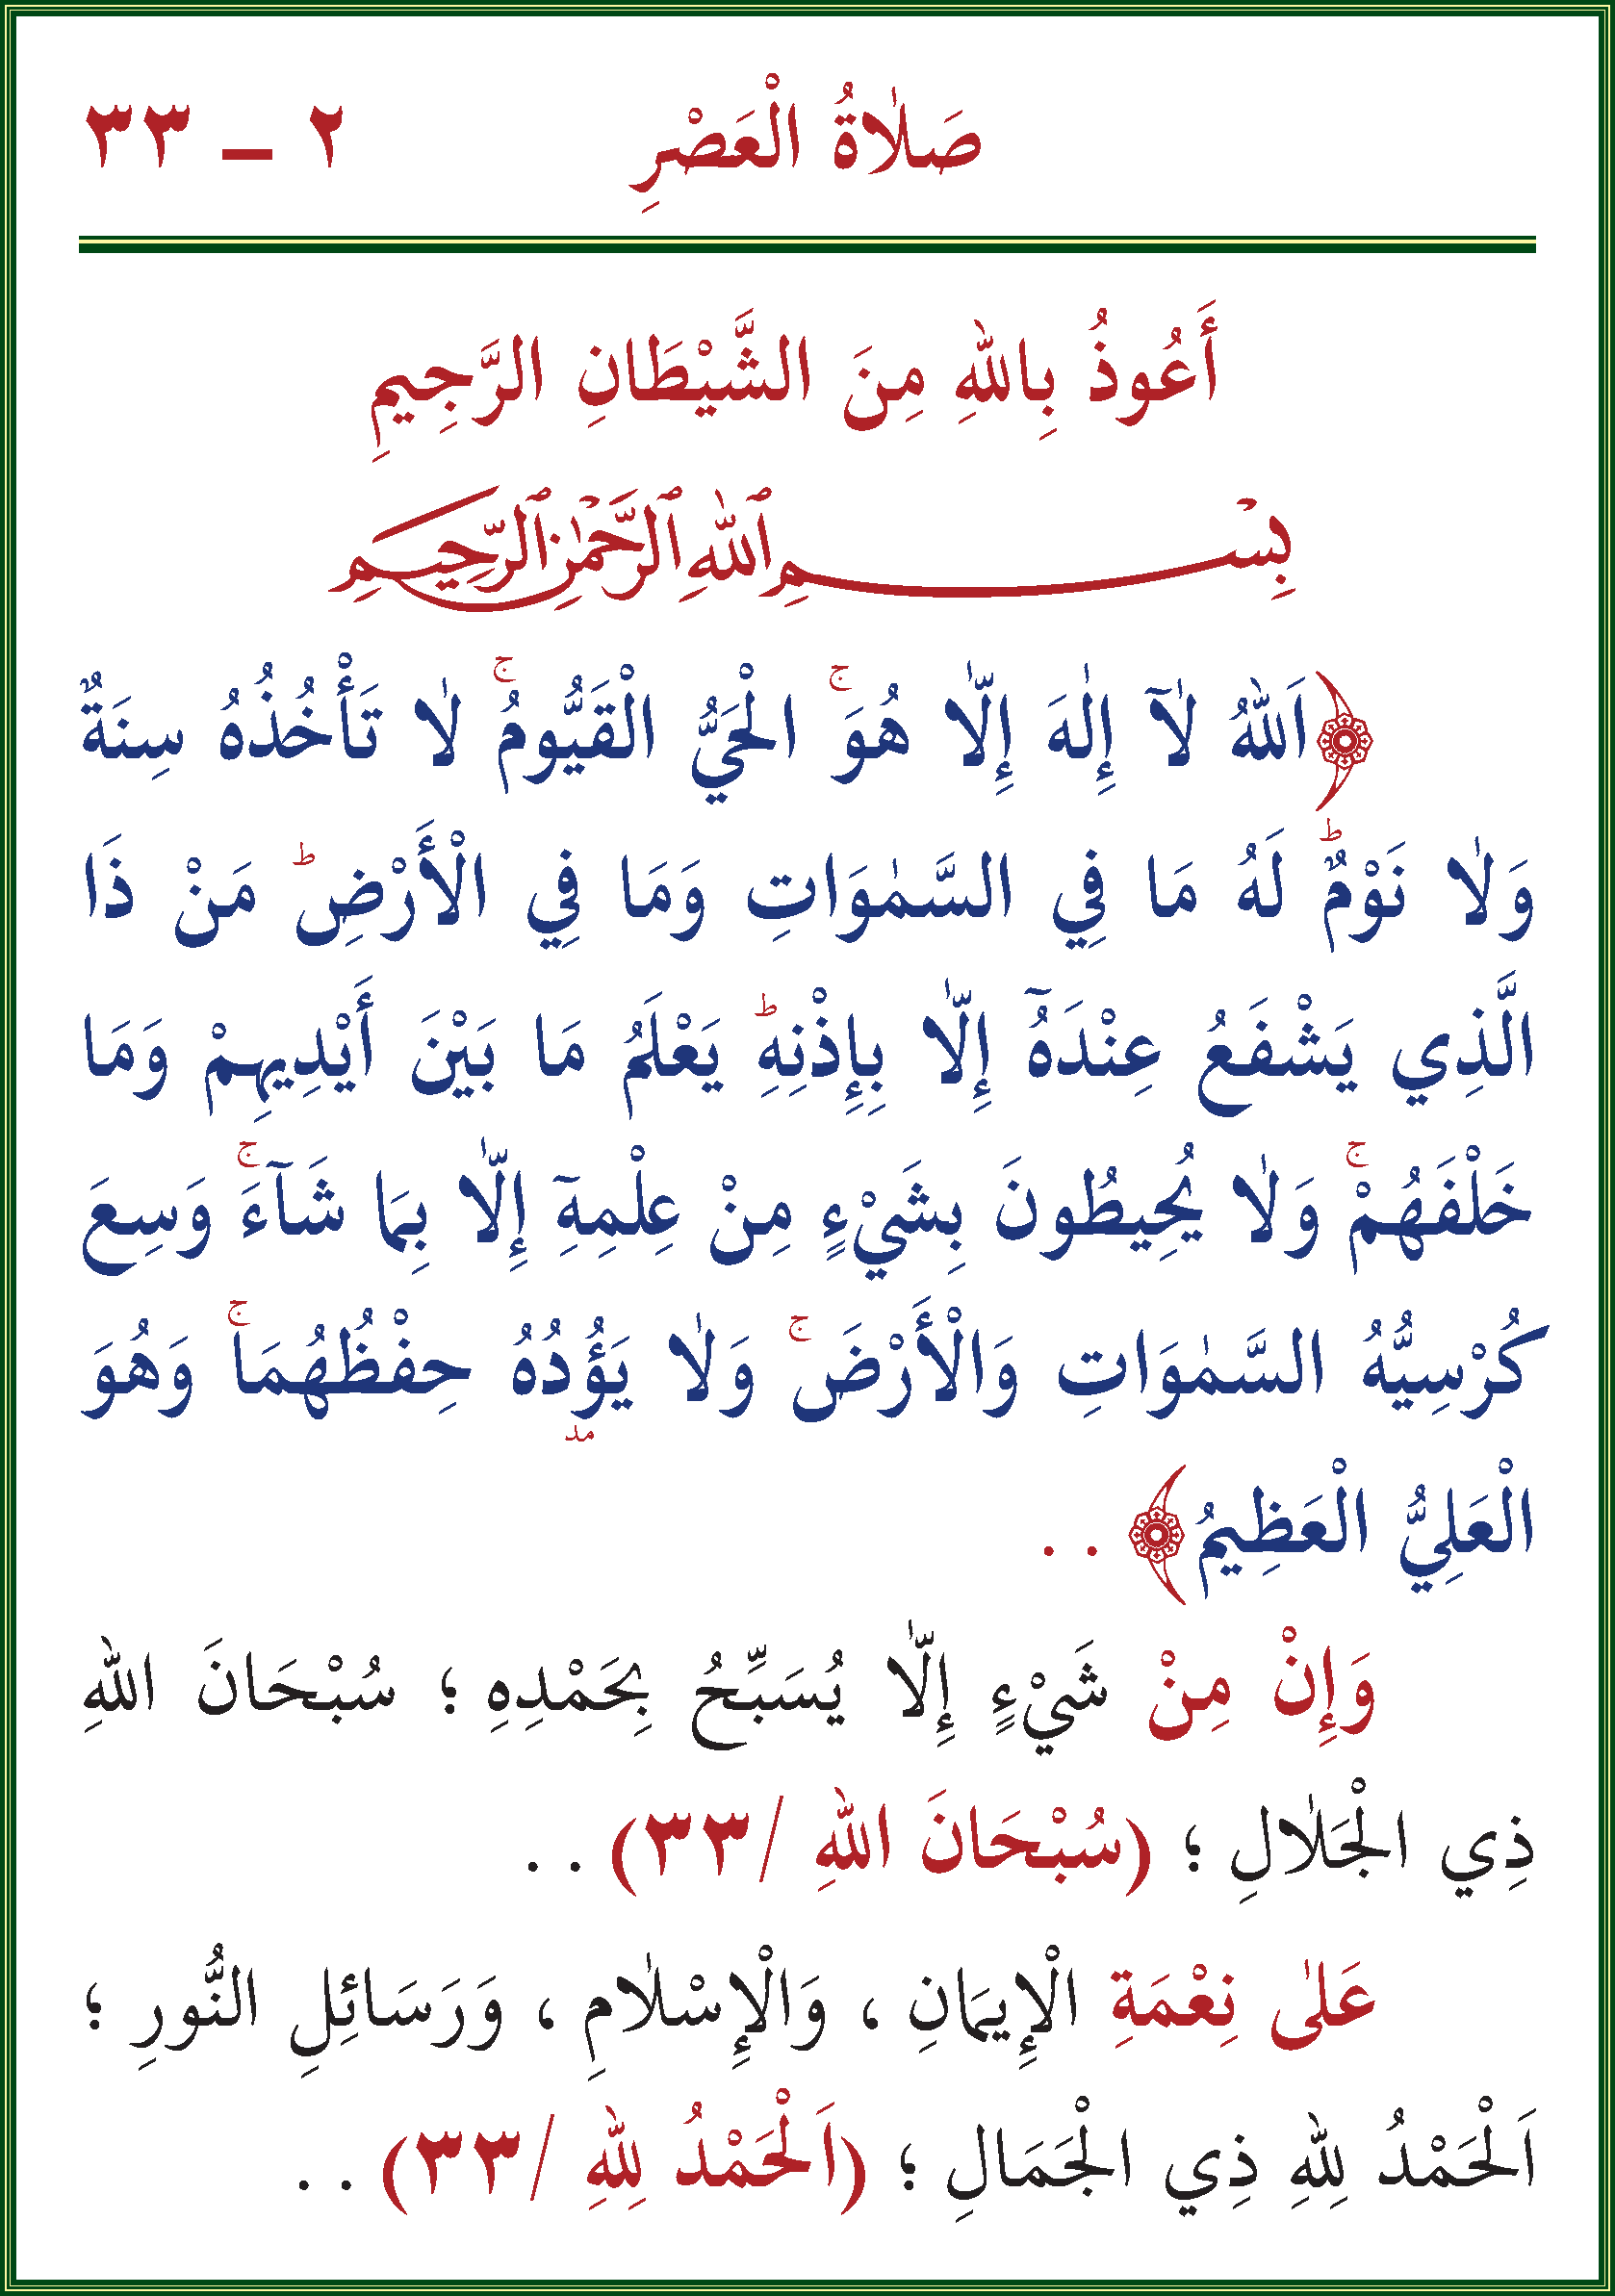 صَلٰاةُ الْعَصْرِ ٢ – ٣٣
أَعُوذُ بِاللهِ مِنَ الشَّيْطَانِ الرَّجِيمِ
بِسْمِ ٱللهِ ٱلرَّحْمٰنِ ٱلرَّحِيمِ
﴿اَللهُ لٰآ إِلٰهَ إِلّٰا هُوَۚ الْحَيُّ الْقَيُّومُۚ لٰا تَأْخُذُهُ سِنَةٌ
وَلٰا نَوْمٌؕ لَهُ مَا فِي السَّمٰوَاتِ وَمَا فِي الْأَرْضِؕ مَنْ ذَا
الَّذِي يَشْفَعُ عِنْدَهُٓ إِلّٰا بِإِذْنِهِؕ يَعْلَمُ مَا بَيْنَ أَيْدِيهِمْ وَمَا
خَلْفَهُمْۚ وَلٰا يُحِيطُونَ بِشَيْءٍ مِنْ عِلْمِهِٓ إِلّٰا بِمَا شَآءَۚ وَسِعَ
كُرْسِيُّهُ السَّمٰوَاتِ وَالْأَرْضَۚ وَلٰا يَؤُدُهُ حِفْظُهُمَاۚ وَهُوَ
مد
الْعَلِيُّ الْعَظِيمُ﴾ . .
وَإِنْ مِنْ شَيْءٍ إِلّٰا يُسَبِّحُ بِحَمْدِهِ ؛ سُبْحَانَ اللهِ
ذِي الْجَلٰالِ ؛ (سُبْحَانَ اللهِ /٣٣) . .
عَلٰى نِعْمَةِ الْإِيمَانِ ، وَالْإِسْلٰامِ ، وَرَسَائِلِ النُّورِ ؛
اَلْحَمْدُ لِلهِ ذِي الْجَمَالِ ؛ (اَلْحَمْدُ لِلهِ /٣٣) . .